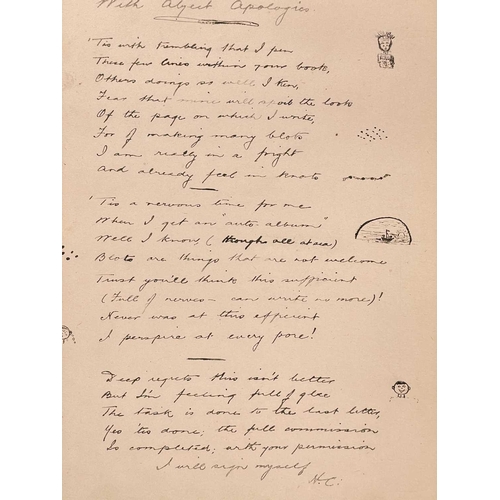 With Abject Apologies.
'Tis with trembling that I pen
These few lines within your book,
Others doings so well I ken,
Fear that mine will spoil the look
Of the page on which I write,
For of making many blots
I am really in a fright
And already feel in knots
'Tis a nervous time for me
When I get an "auto-album"
Well I know (though all at sea)
Blots are things that are not welcome
Trust you'll think this sufficient
(Full of nerves – can write no more)!
Never was at this efficient
I perspire at every pore!
Deep regrets this isn't better
But I'm feeling full of glee
The task is done to the last letter,
Yes 'tis done; the full commission
Is completed; with your permission
I will sign myself
H.C.